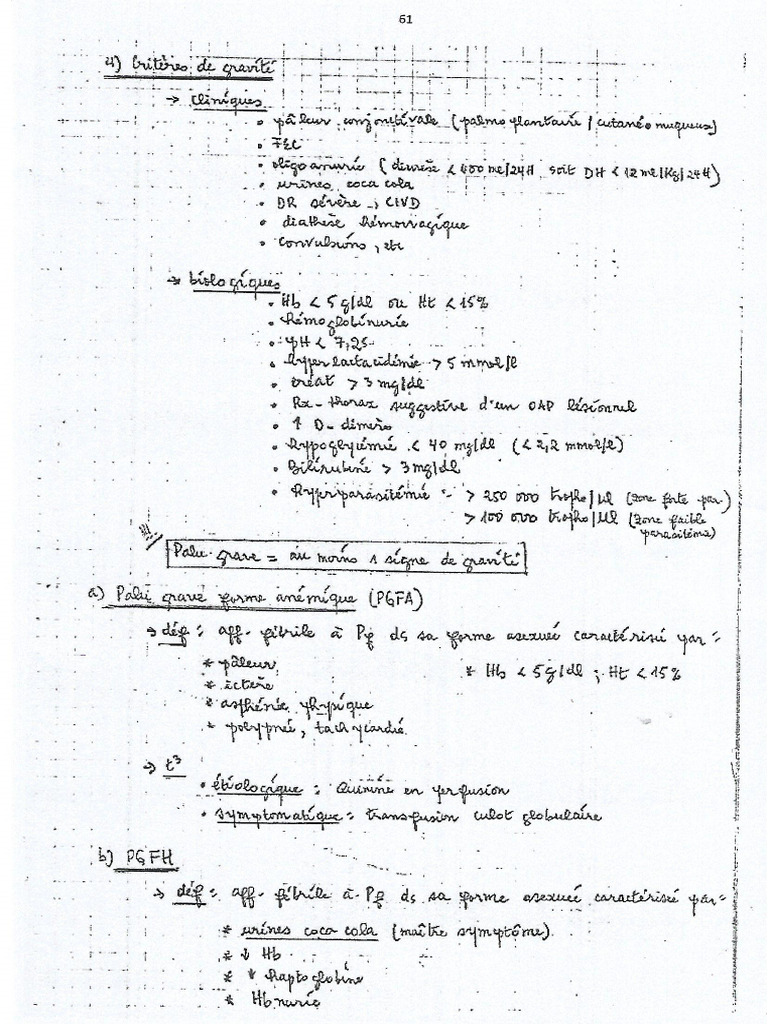 61
4) Critères de gravité
→ cliniques
• pâleur conjonctivale (palmo plantaire / cutanéo muqueux)
• FEC
• oligo anurie (diurèse < 400 ml/24H soit DH < 12 ml/Kg/24H)
• urines coca cola
• DR sévère → CIVD
• diathèse hémorragique
• convulsions, etc
→ biologiques
• Hb < 5 g/dl ou Ht < 15%
• hémoglobinurie
• pH < 7,25
• hyperlactacidémie > 5 mmol/l
• créat > 3 mg/dl
• Rx-thorax suggestive d'un OAP lésionnel
• ↑ D-dimère
• hypoglycémie < 40 mg/dl (< 2,2 mmol/l)
• Bilirubine > 3 mg/dl
• Hyperparasitémie - > 250 000 tropho/µl (zone forte par.)
> 100 000 tropho/µl (zone faible parasitémie)
!!! Palu grave = au moins 1 signe de gravité
a) Palu grave forme anémique (PGFA)
→ déf = aff. fébrile à Pf ds sa forme asexuée caractérisé par =
* pâleur * Hb < 5 g/dl ; Ht < 15%
* ictère
* asthénie physique
* polypnée, tachycardie.
→ t³
• étiologique = Quinine en perfusion
• symptomatique = transfusion culot globulaire
b) PGFH
→ déf = aff. fébrile à Pf ds sa forme asexuée caractérisé par =
* urines coca cola (maître symptôme).
* ↓ Hb
* ↓ haptoglobine
* Hb nurie